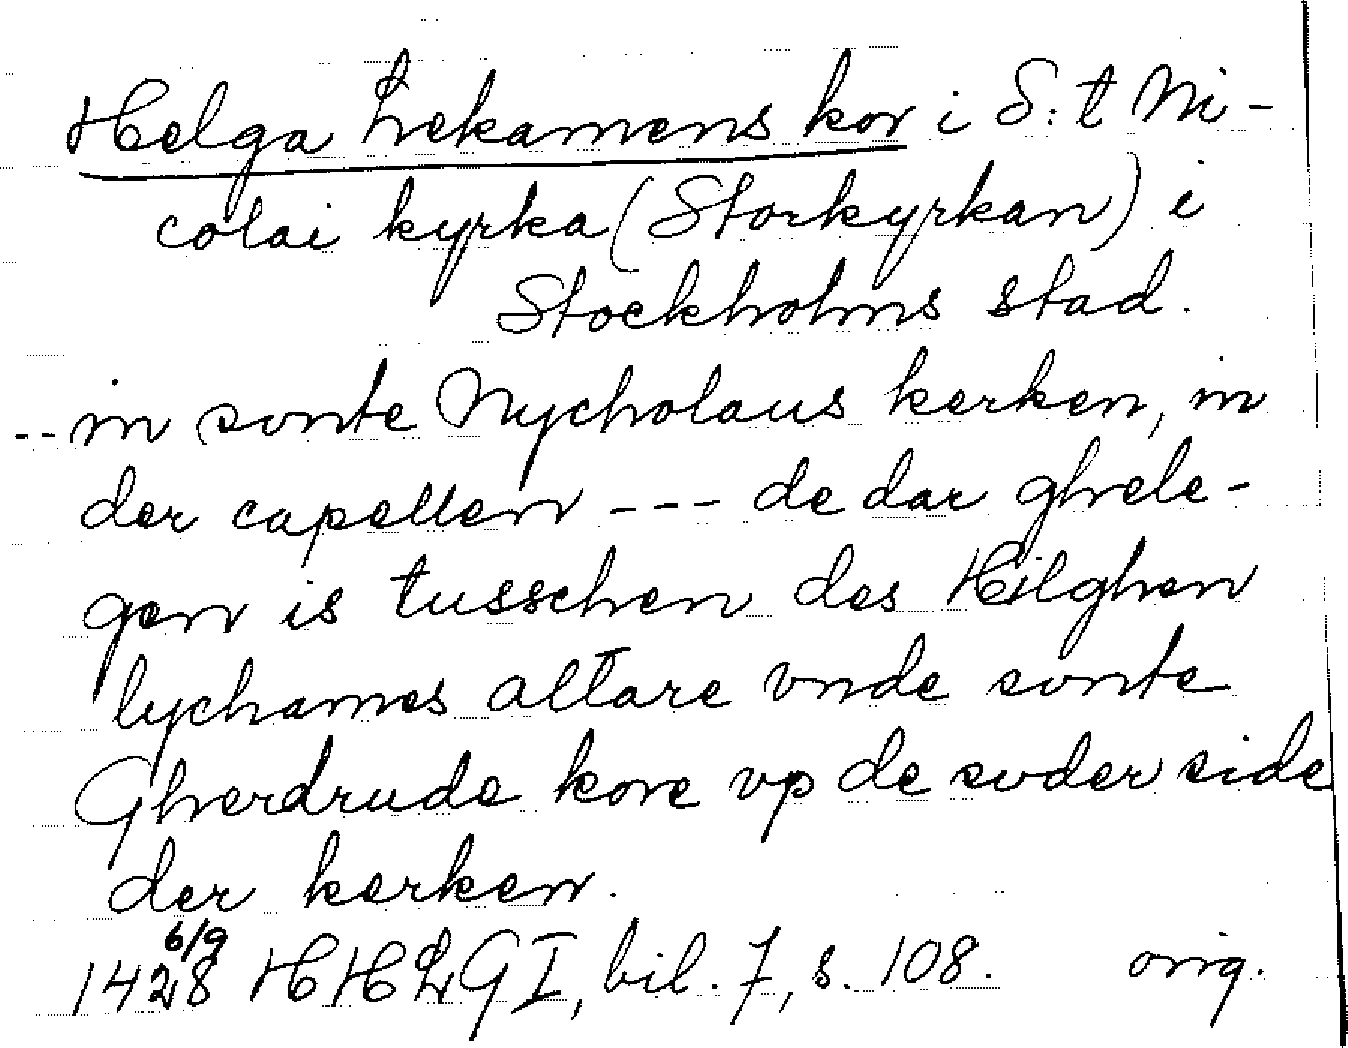 Helga Lekamens kor i S:t Ni-
colai kyrka (Storkyrkan) i
Stockholms stad.
-- in sunte Nycholaus kerken, in
der capellen --- de dar ghele-
gen is tusschen des Hilghen
lychames altare vnde sunte
Gherdrude kore vp de suder side
der kerken.
1428 6/9 HHLG I, bil. 7, s. 108. orig.